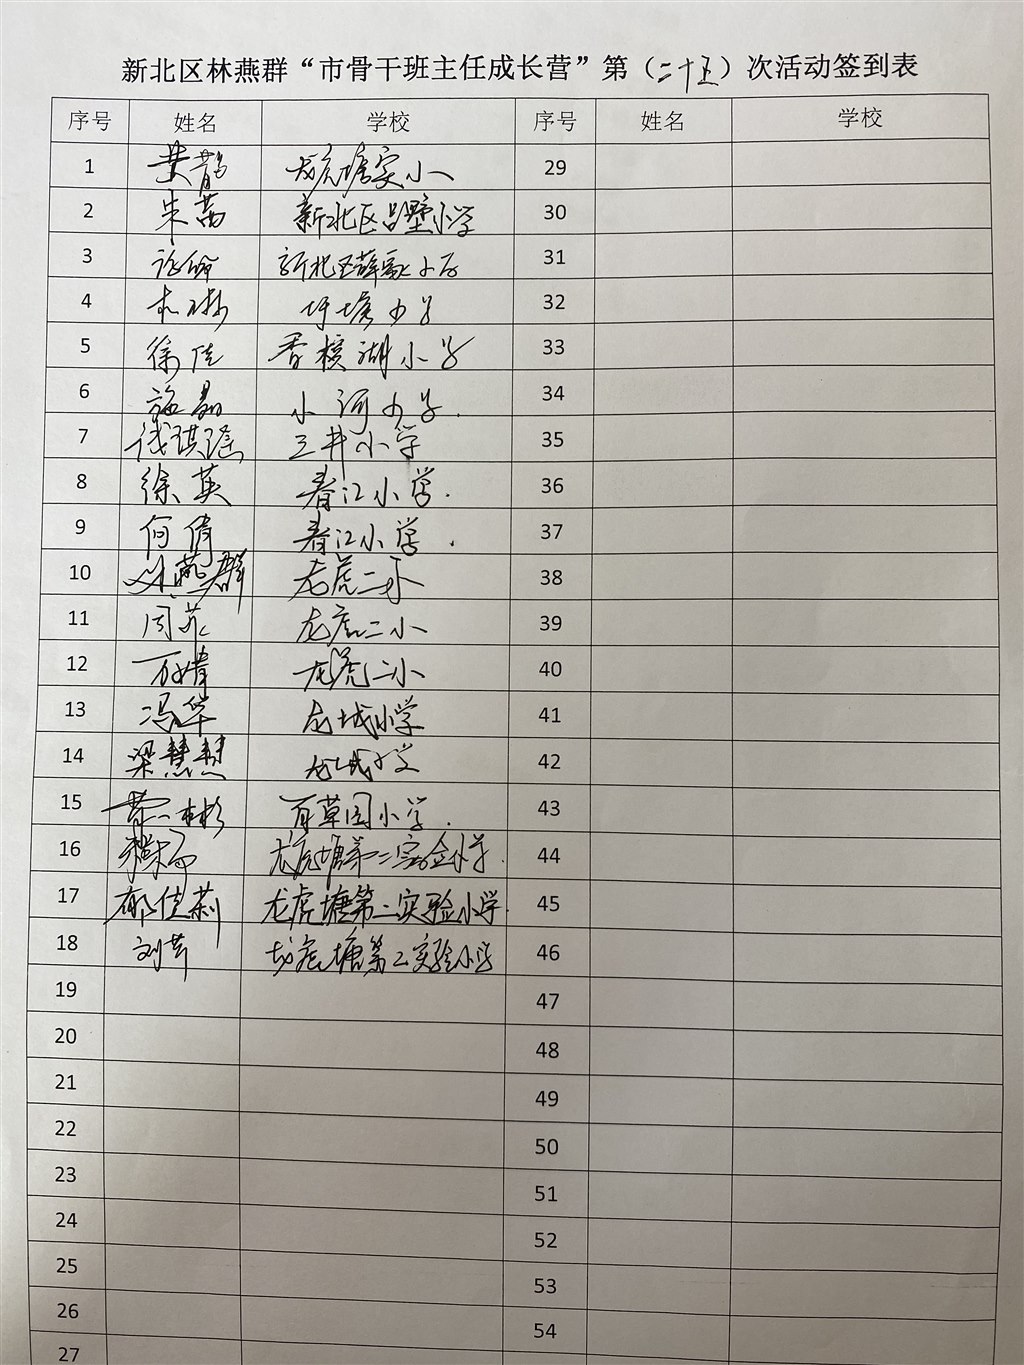 新北区林燕群“市骨干班主任成长营”第（二十五）次活动签到表
序号 姓名 学校 序号 姓名 学校
1 龙虎塘实小 29
2 朱茜 新北区吕墅小学 30
3 新北区薛家小学 31
4 圩塘小学 32
5 徐佳 香槟湖小学 33
6 施晶 小河小学. 34
7 钱琪瑶 三井小学 35
8 徐英 春江小学. 36
9 何倩 春江小学. 37
10 林燕群 龙虎二小 38
11 周苏 龙虎二小 39
12 万婧 龙虎二小 40
13 冯华 龙城小学 41
14 梁慧慧 龙城小学 42
15 百草园小学. 43
16 龙虎塘第二实验小学. 44
17 郁佳莉 龙虎塘第二实验小学. 45
18 刘芹 龙虎塘第二实验小学 46
19 47
20 48
21 49
22 50
23 51
24 52
25 53
26 54
27